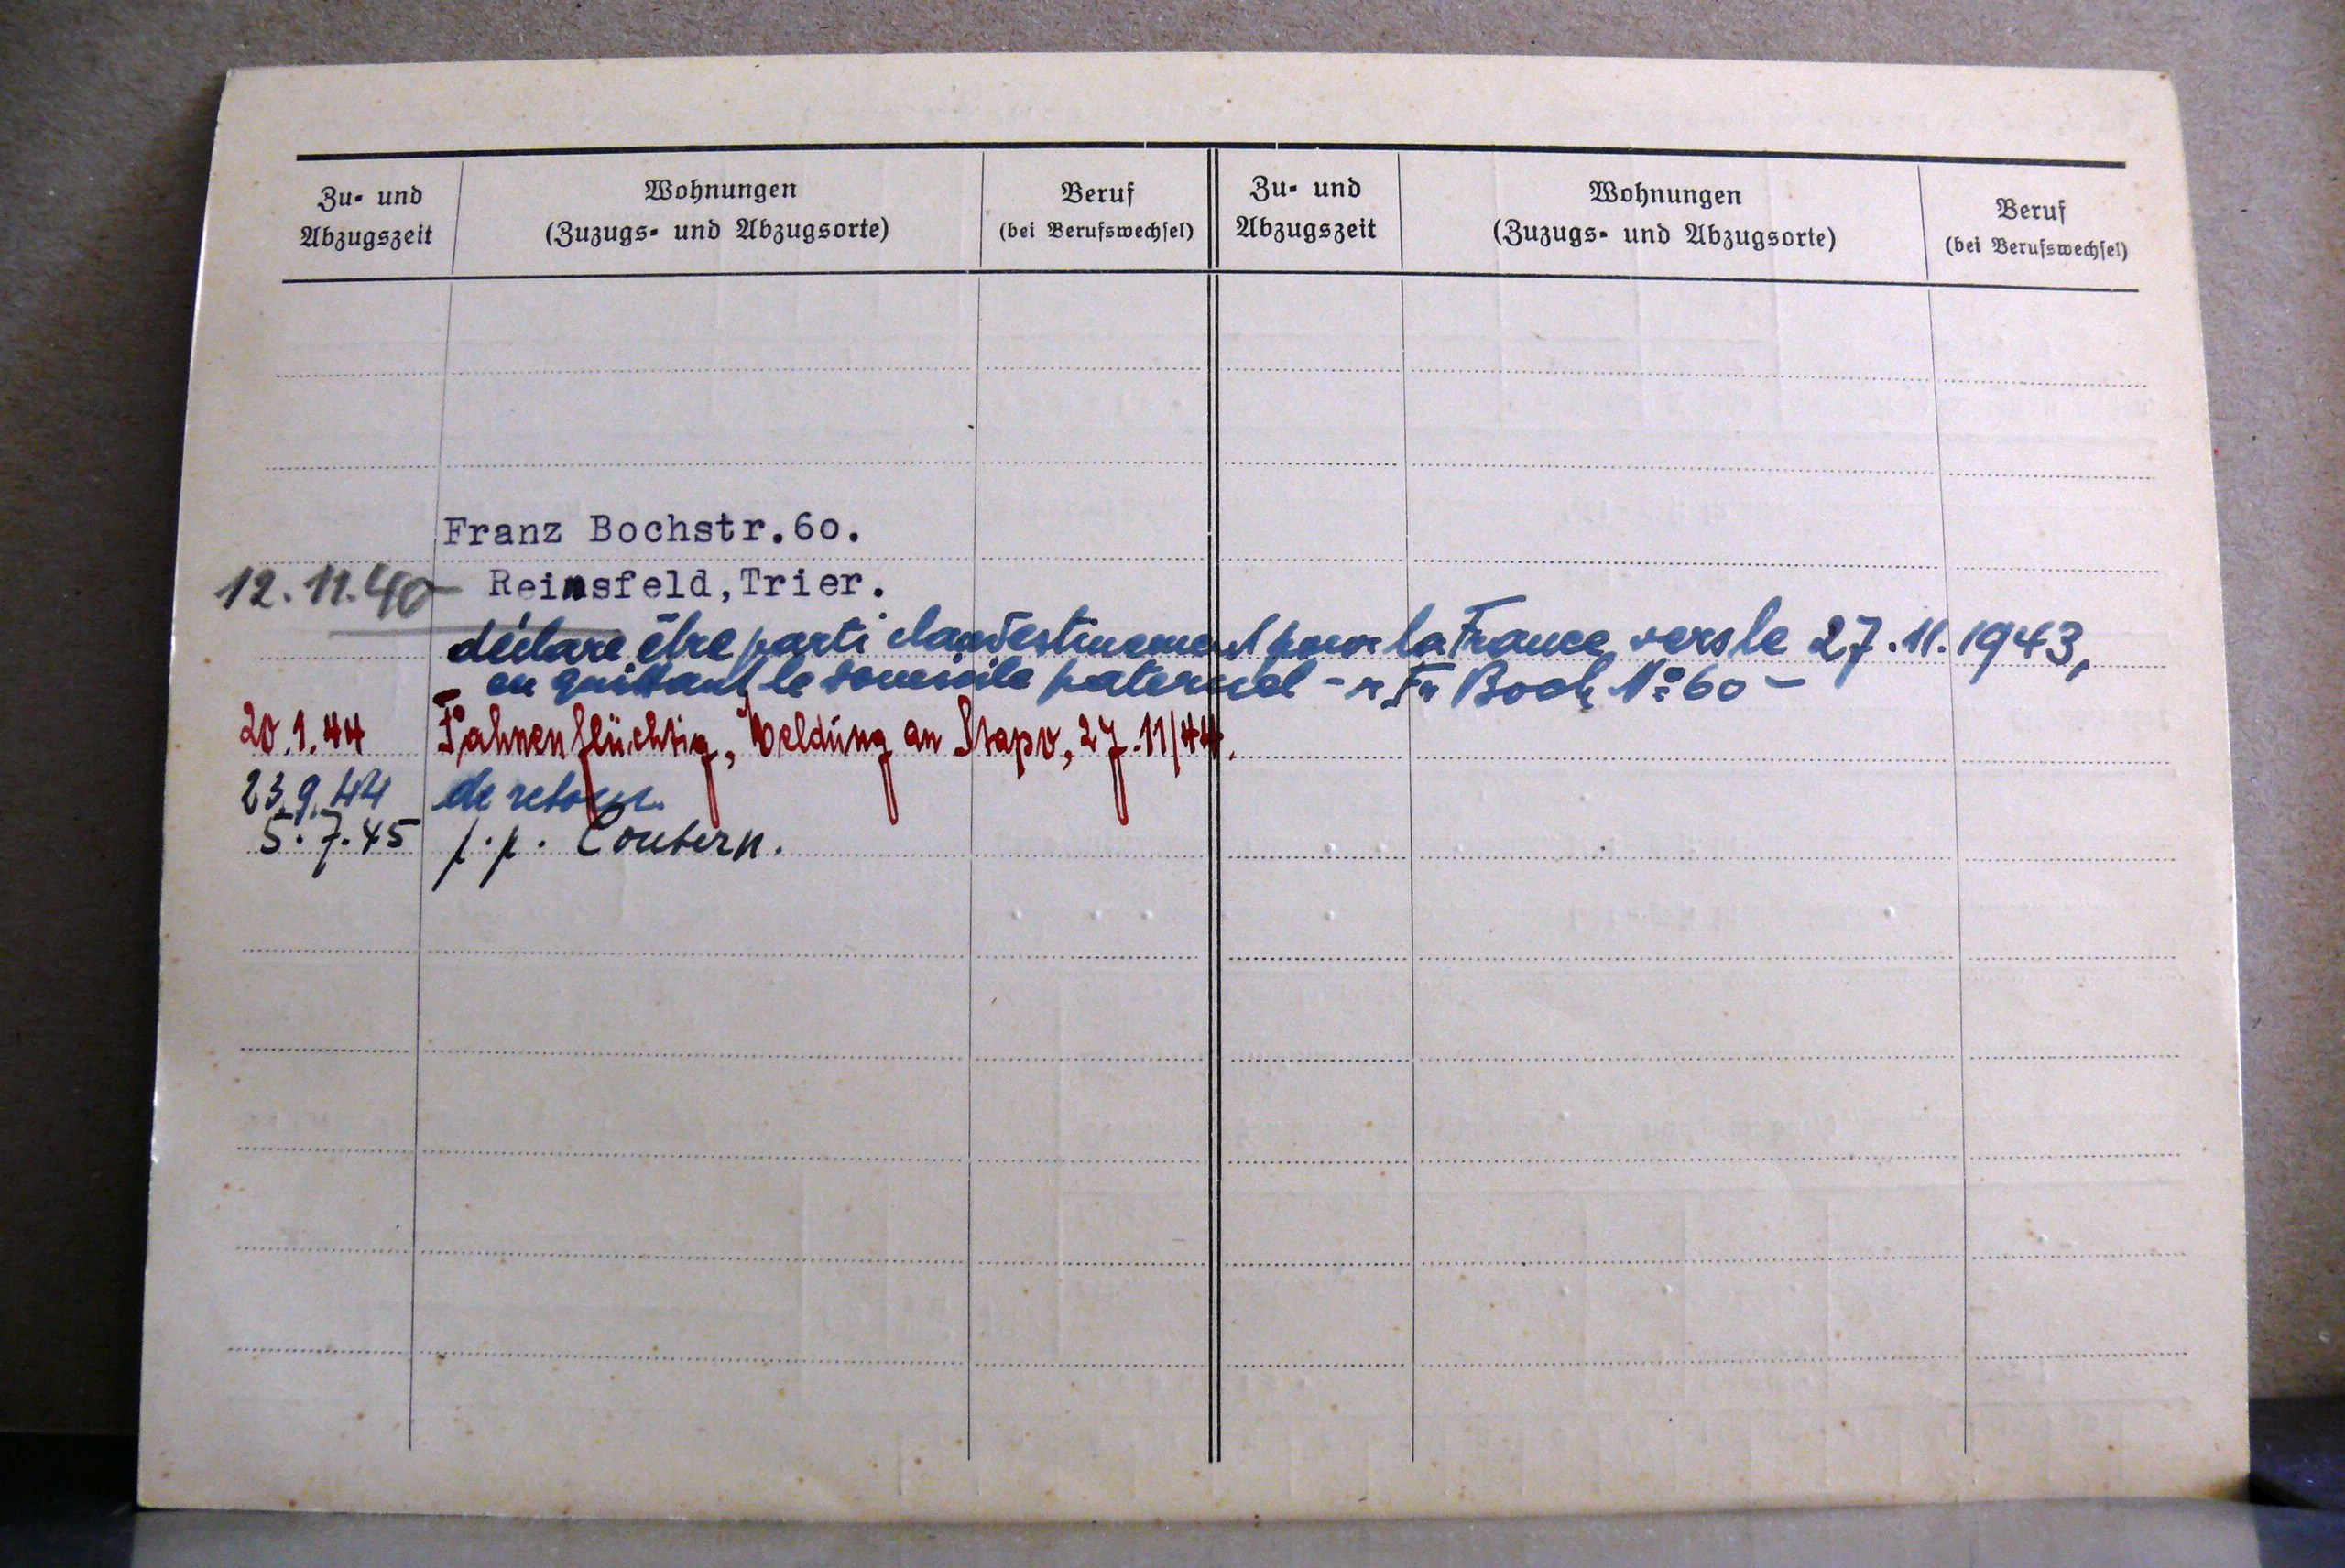 Zu- und Abzugszeit
Wohnungen (Zuzugs- und Abzugsorte)
Beruf (bei Berufswechsel)
Zu- und Abzugszeit
Wohnungen (Zuzugs- und Abzugsorte)
Beruf (bei Berufswechsel)
Franz Bochstr.60.
12.11.40 Reinsfeld,Trier.
déclare être parti clandestinement pour la France vers le 27.11.1943,
en quittant le domicile paternel - r Fr Boch N° 60 -
20.1.44 Fahnenflüchtig, Meldung an Stapo, 27.11/44.
23.9.44 de retour.
5.7.45 p.p. Contern.